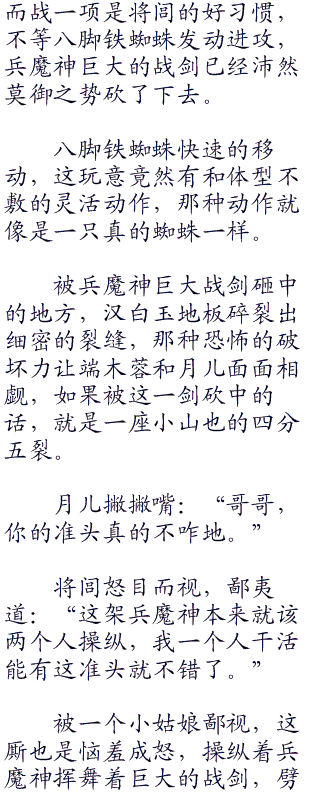 而战一项是将闾的好习惯，
不等八脚铁蜘蛛发动进攻，
兵魔神巨大的战剑已经沛然
莫御之势砍了下去。
八脚铁蜘蛛快速的移
动，这玩意竟然有和体型不
敷的灵活动作，那种动作就
像是一只真的蜘蛛一样。
被兵魔神巨大战剑砸中
的地方，汉白玉地板碎裂出
细密的裂缝，那种恐怖的破
坏力让端木蓉和月儿面面相
觑，如果被这一剑砍中的
话，就是一座小山也的四分
五裂。
月儿撇撇嘴：“哥哥，
你的准头真的不咋地。”
将闾怒目而视，鄙夷
道：“这架兵魔神本来就该
两个人操纵，我一个人干活
能有这准头就不错了。”
被一个小姑娘鄙视，这
厮也是恼羞成怒，操纵着兵
魔神挥舞着巨大的战剑，劈